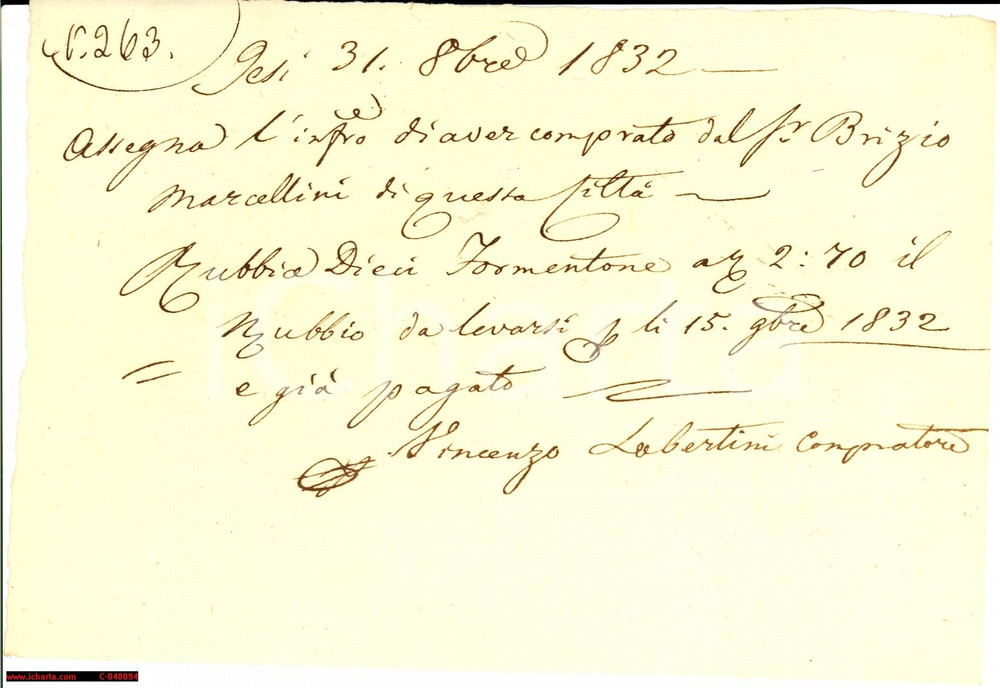 N. 263.
Jesi 31. 8bre 1832
Assegna l'infro di aver comprato dal Sr Brizio
Marcellini di questa Città
Rubbia Dieci Formentone a 2:70 il
Rubbio da levarsi p li 15. 9bre 1832
= e già pagato
Vincenzo Labertini Compratore
iCharta
www.icharta.com C-040894